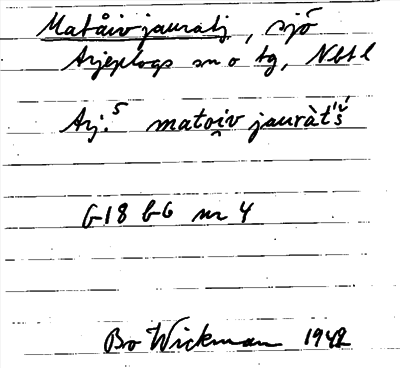 Matåivjauratj, sjö
Arjeplogs sn o tg, Nbtl
Arj.⁵ matoi̭v jauràt́š́
G18 b6 nr 4
Bo Wickman 1942